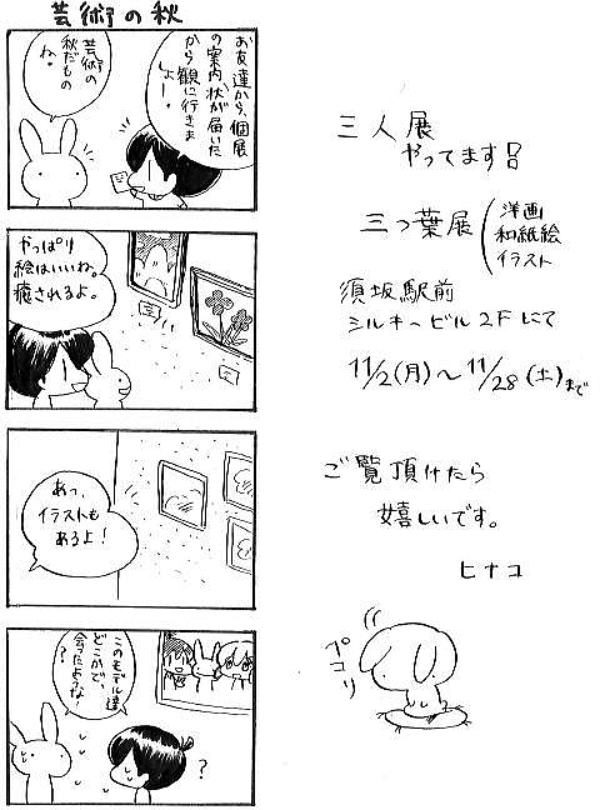 芸術の秋
お友達から、個展
の案内状が届いた
から観に行きま
しょー。
芸術の
秋だもの
ね。
やっぱり
絵はいいね。
癒されるよ。
あっ、
イラストも
あるよ！
このモデル達
どこかで、
会ったような！
？
？
三人展
やってます!!
三つ葉展
洋画
和紙絵
イラスト
須坂駅前
シルキービル2Fにて
11/2(月)〜11/28(土)まで
ご覧頂けたら
嬉しいです。
ヒナコ
ペコリ